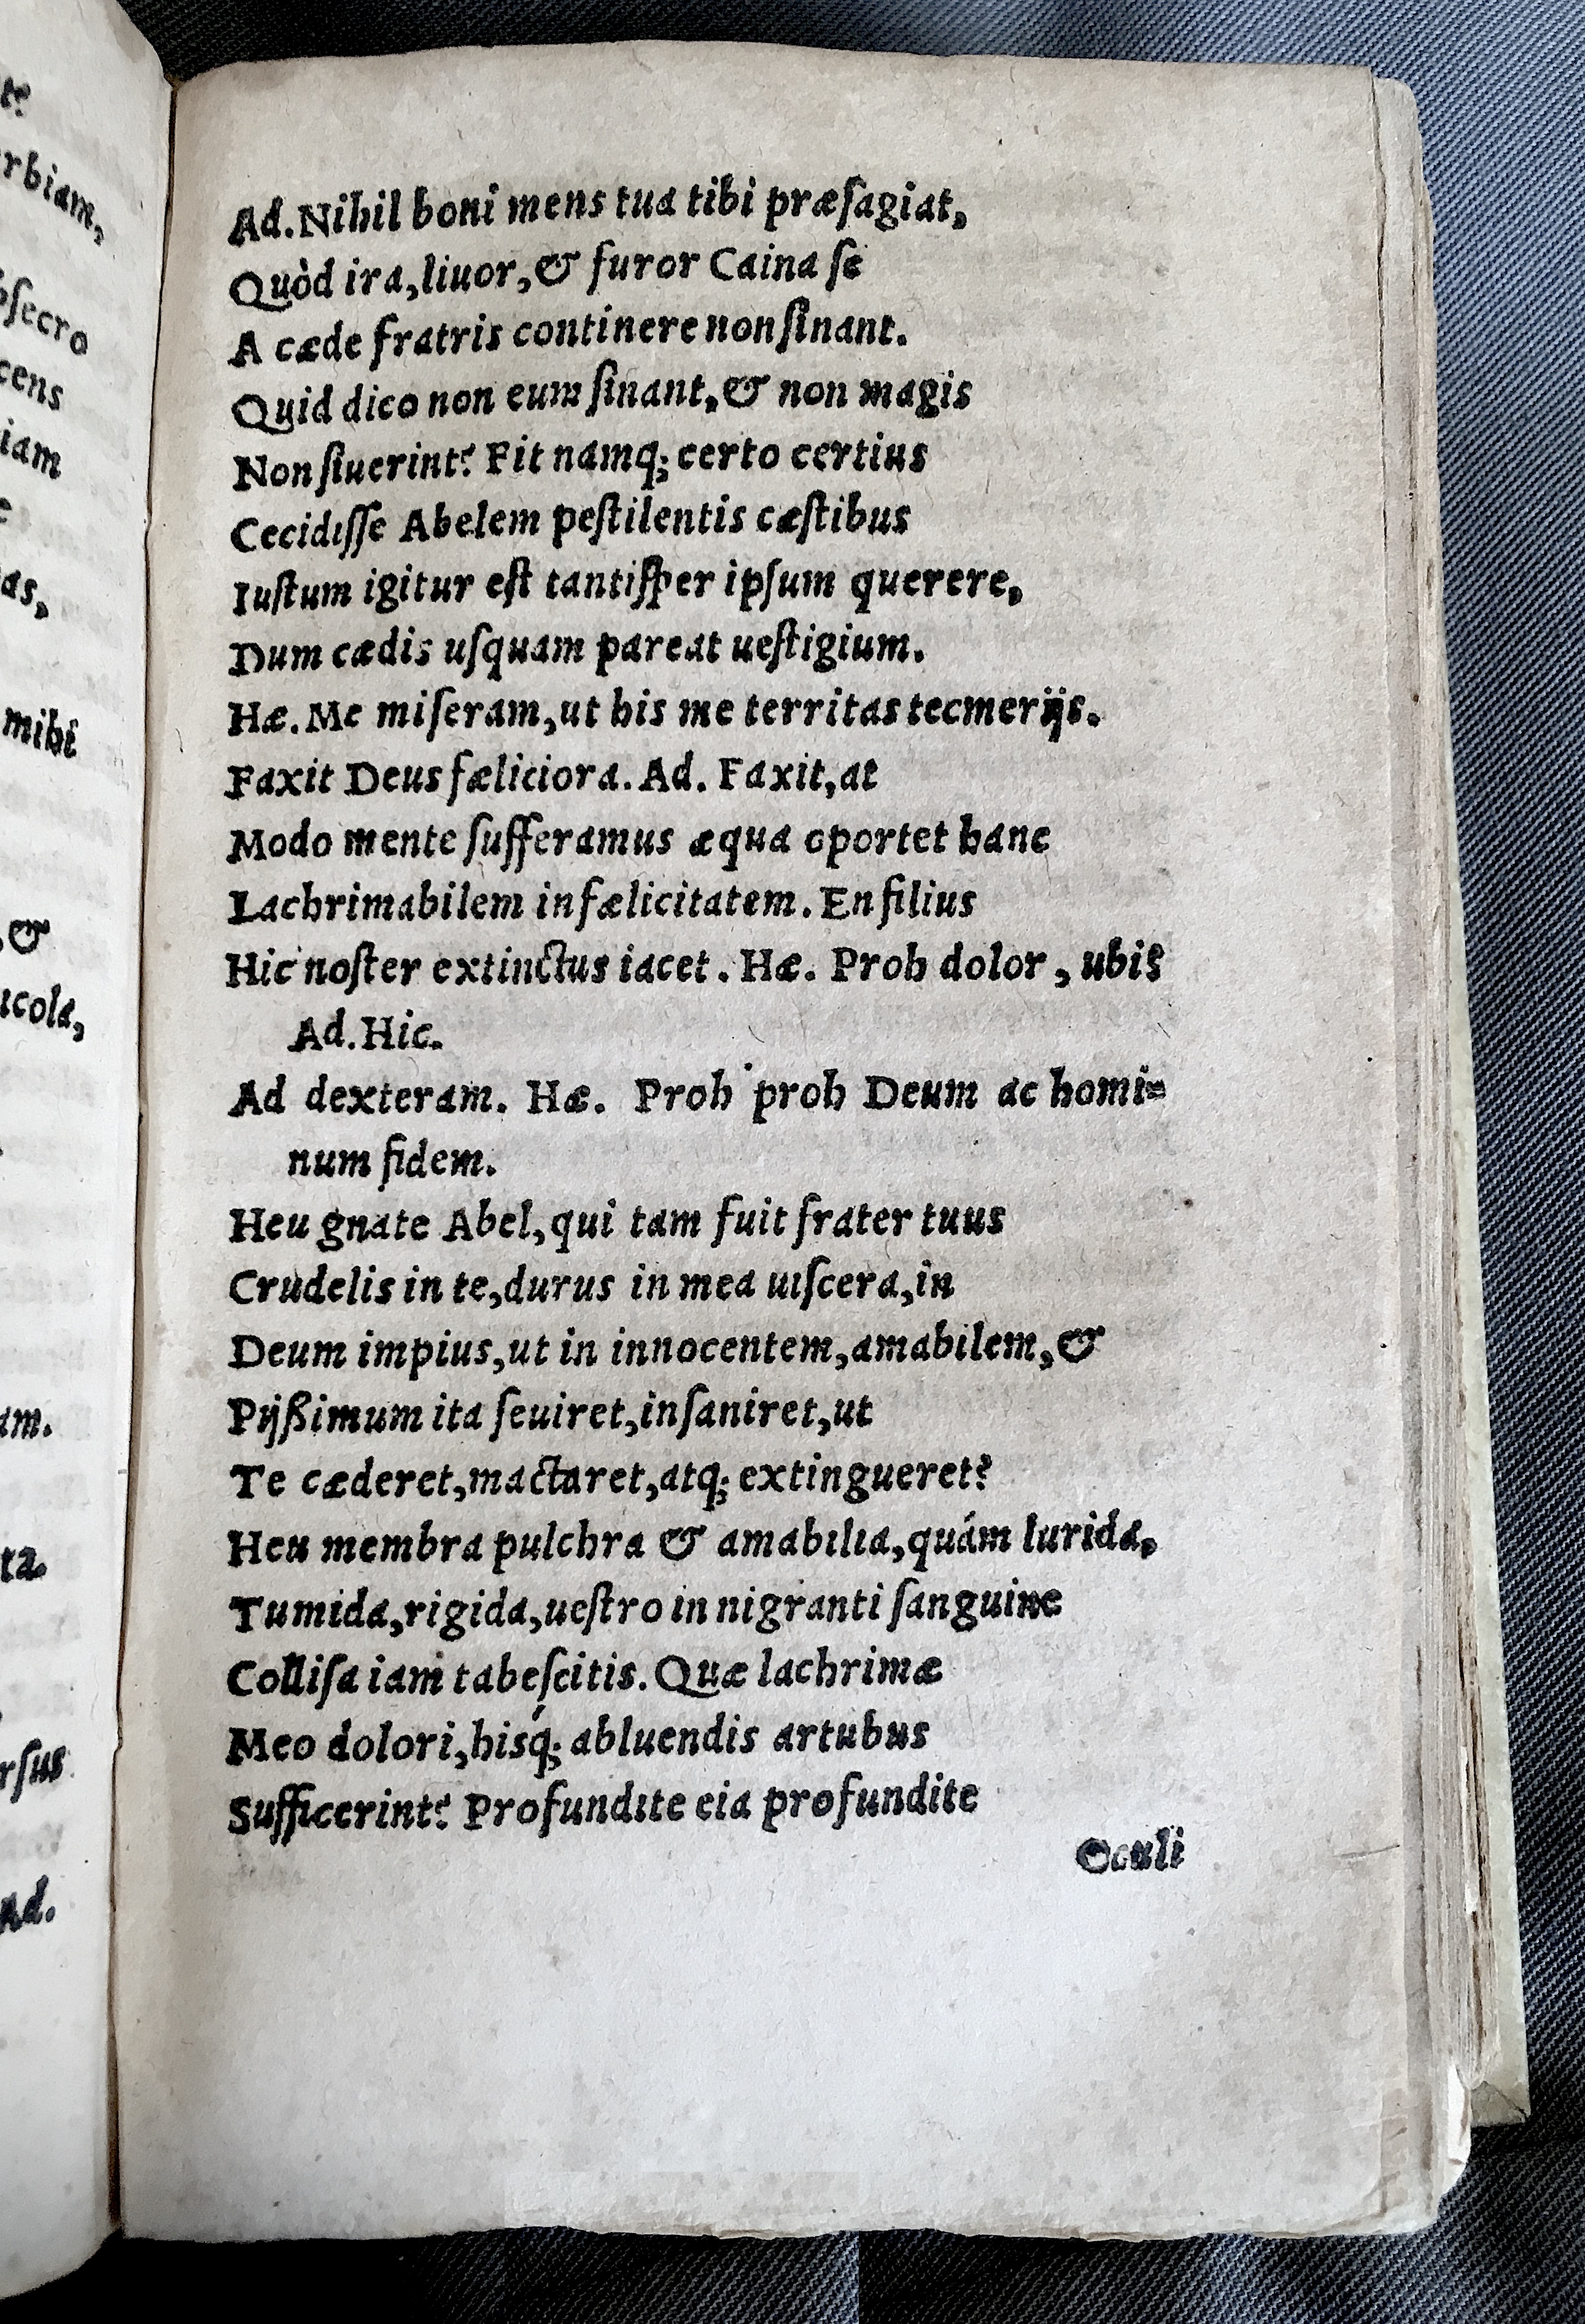 Ad. Nihil boni mens tua tibi præſagiat,
Quòd ira, liuor, & furor Caina ſe
A cæde fratris continere non ſinant.
Quid dico non eum ſinant, & non magis
Non ſiuerint? Fit namq; certo certius
Cecidiſſe Abelem peſtilentis cæſtibus
Iuſtum igitur eſt tantiſper ipſum querere,
Dum cædis uſquam pareat ueſtigium.
Hæ. Me miſeram, ut his me territas tecmerijs.
Faxit Deus fæliciora. Ad. Faxit, at
Modo mente ſufferamus æqua oportet hanc
Lachrimabilem infælicitatem. En filius
Hic noſter extinctus iacet. Hæ. Proh dolor, ubi?
Ad. Hic.
Ad dexteram. Hæ. Proh proh Deum ac homi=
num fidem.
Heu gnate Abel, qui tam fuit frater tuus
Crudelis in te, durus in mea uiſcera, in
Deum impius, ut in innocentem, amabilem, &
Pijßimum ita ſeuiret, inſaniret, ut
Te cæderet, mactaret, atq; extingueret?
Heu membra pulchra & amabilia, quám lurida,
Tumida, rigida, ueſtro in nigranti ſanguine
Colliſa iam tabeſcitis. Quæ lachrimæ
Meo dolori, hisq́; abluendis artubus
Sufficerint? Profundite eia profundite
Oculi
rbiam,
ſecro
cens
iam
as,
mihi
&
icola,
am.
ta.
rſus
Ad.